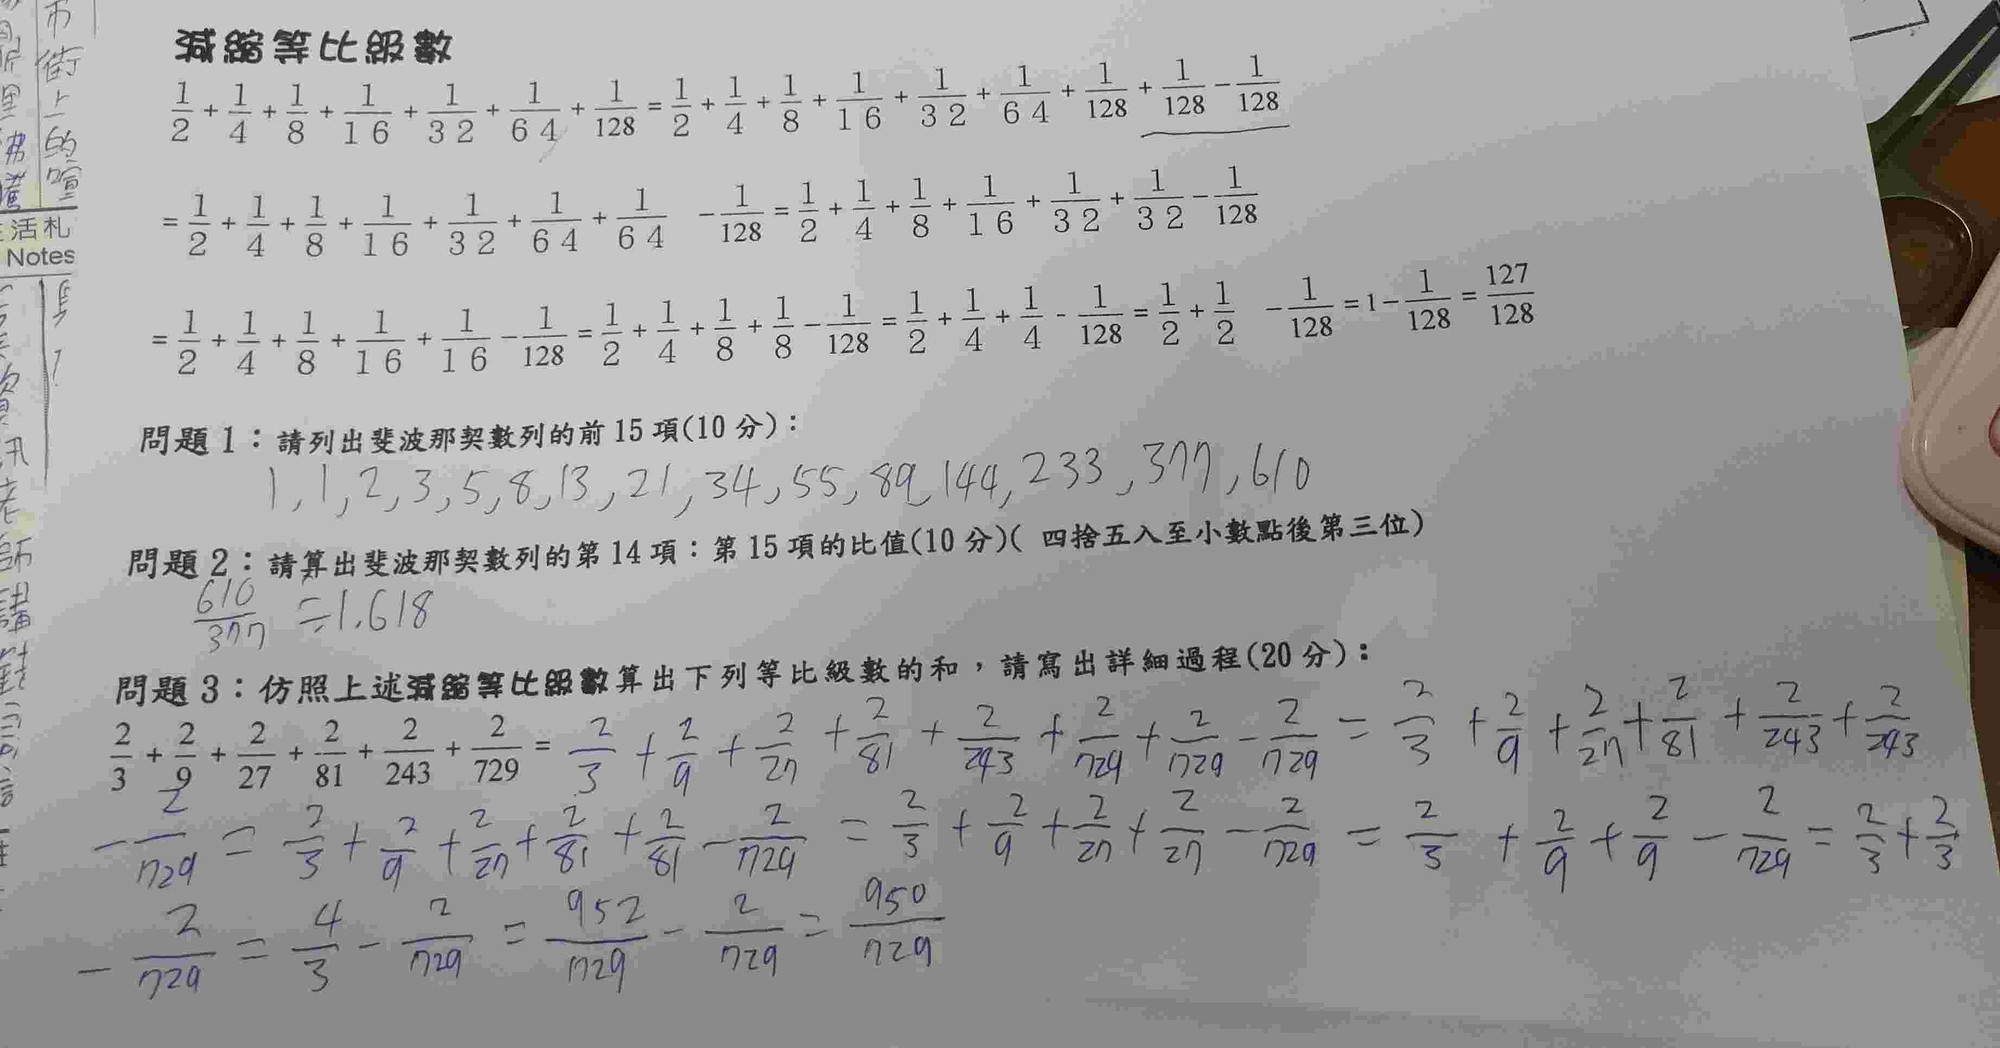 減縮等比級數
1/2 + 1/4 + 1/8 + 1/16 + 1/32 + 1/64 + 1/128 = 1/2 + 1/4 + 1/8 + 1/16 + 1/32 + 1/64 + 1/128 + 1/128 - 1/128
= 1/2 + 1/4 + 1/8 + 1/16 + 1/32 + 1/64 + 1/64 - 1/128 = 1/2 + 1/4 + 1/8 + 1/16 + 1/32 + 1/32 - 1/128
= 1/2 + 1/4 + 1/8 + 1/16 + 1/16 - 1/128 = 1/2 + 1/4 + 1/8 + 1/8 - 1/128 = 1/2 + 1/4 + 1/4 - 1/128 = 1/2 + 1/2 - 1/128 = 1 - 1/128 = 127/128
問題1：請列出斐波那契數列的前15項(10分)：
1,1,2,3,5,8,13,21,34,55,89,144,233,377,610
問題2：請算出斐波那契數列的第14項：第15項的比值(10分)(四捨五入至小數點後第三位)
610/377 ≒ 1.618
問題3：仿照上述減縮等比級數算出下列等比級數的和，請寫出詳細過程(20分)：
2/3 + 2/9 + 2/27 + 2/81 + 2/243 + 2/729 = 2/3 + 2/9 + 2/27 + 2/81 + 2/243 + 2/729 + 2/729 - 2/729 = 2/3 + 2/9 + 2/27 + 2/81 + 2/243 + 2/243
- 2/729 = 2/3 + 2/9 + 2/27 + 2/81 + 2/81 - 2/729 = 2/3 + 2/9 + 2/27 + 2/27 - 2/729 = 2/3 + 2/9 + 2/9 - 2/729 = 2/3 + 2/3
- 2/729 = 4/3 - 2/729 = 952/729 - 2/729 = 950/729
市街上的喧
活札
Notes